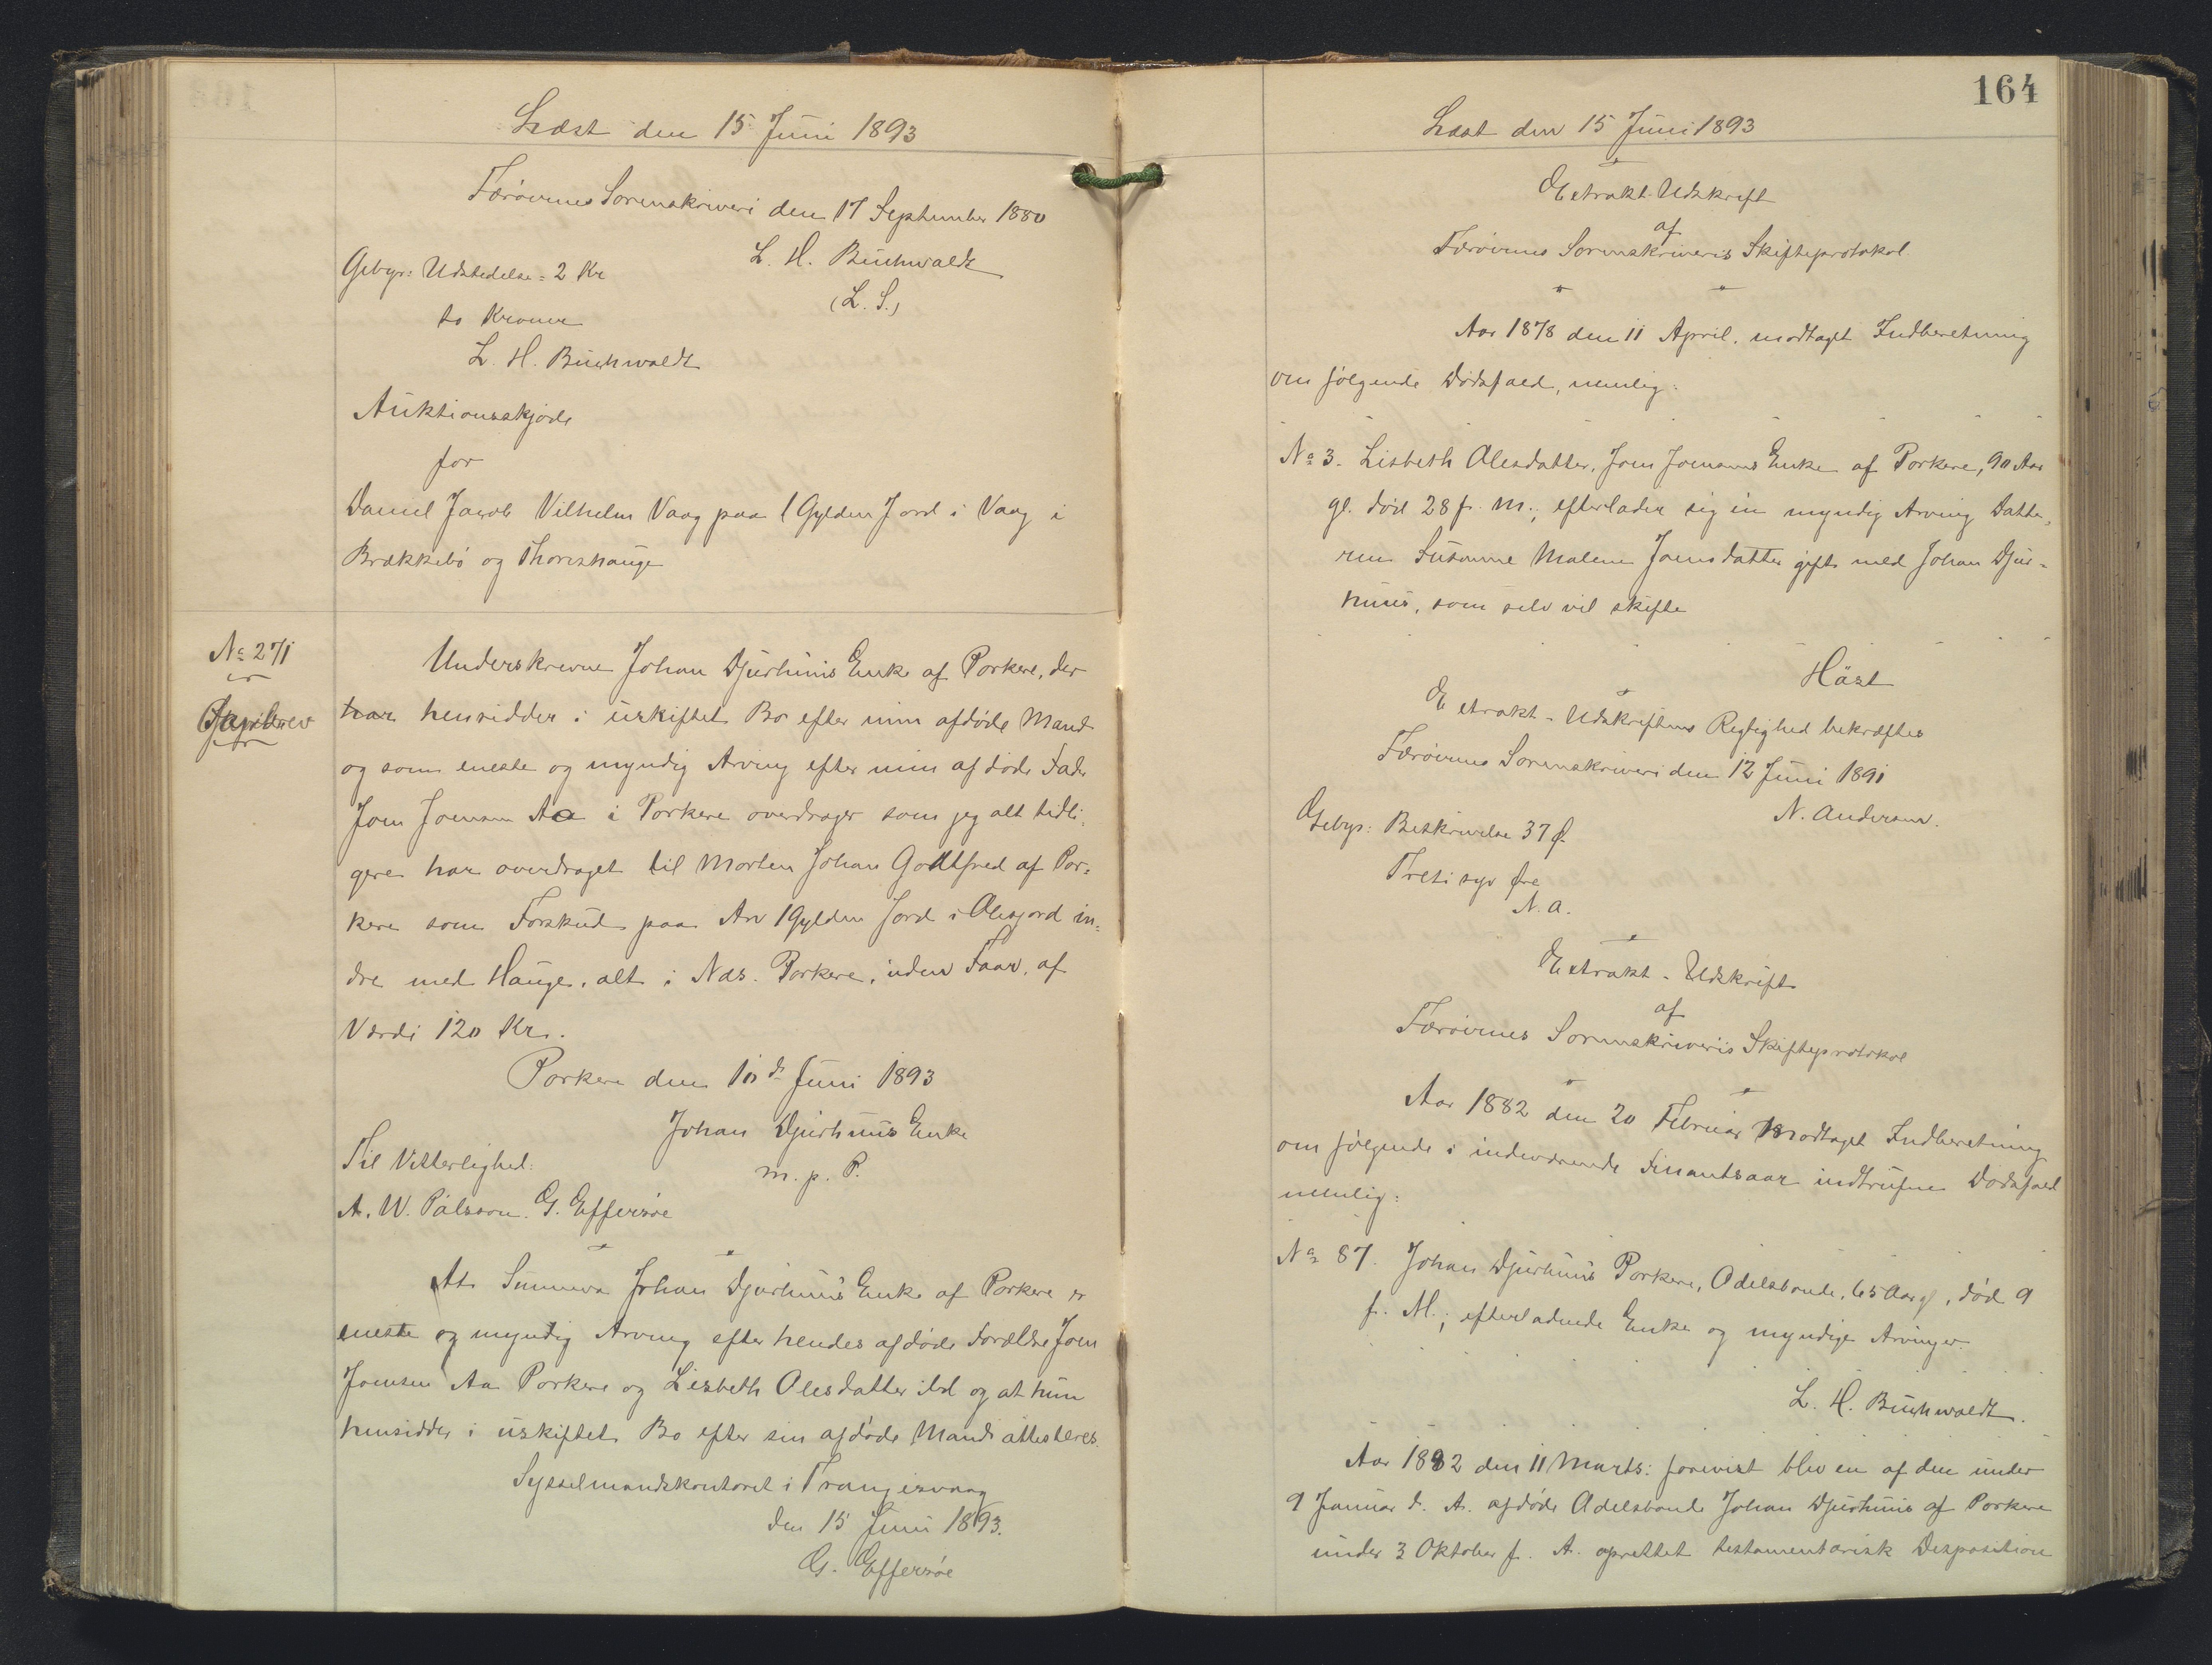 Læst den 15 Juni 1893
Færøernes Sorenskriveri den 17 September 1880
L. H. Buchwaldt
Gebyr: Udstedelse = 2 Kr
(L. S.)
to Kroner
L. H. Buchwaldt
Auktionsskjøde
for
Daniel Jacob Vilhelm Vaag paa 1 Gylden Jord i Vaag i
Brækkebø og Thoreshauge
No 271
Underskrevne Johan Djurhuus Enke af Porkere, der
har hensidder i uskiftet Bo efter min afdøde Mand
og som eneste og myndig Arving efter min afdøde Fader
Joen Joensen Aa i Porkere overdrager som jeg alt tidli-
gere har overdraget til Morten Johan Gottfred af Por-
kere som Forskud paa Arv 1 Gylden Jord i Olesjord in-
dre med Hauge, alt i Næs. Porkere, uden Faar, af
Værdi 120 Kr.
Porkere den 10d Juni 1893
Johan Djurhuus Enke
m. p. P.
Til Vitterlighed:
A. W. Pálsson. G. Effersøe
At Sunneva Johan Djurhuus Enke af Porkere er
eneste og myndig Arving efter hendes afdøde Forældre Joen
Joensen Aa Porkere og Lisbeth Olesdatter ibd og at hun
hensidder i uskiftet Bo efter sin afdøde Mand attesteres.
Sysselmandskontoret i Trangisvaag
den 15 Juni 1893.
G. Effersøe
164
Læst den 15 Juni 1893
Extrakt-Udskrift
af
Færøernes Sorenskriveris Skifteprotokol
Aar 1878 den 11 April, modtaget Indberetning
om følgende Dødsfald, nemlig:
No 3. Lisbeth Olesdatter, Joen Joensens Enke af Porkere, 90 Aar
gl. død 28 f. M.; efterlader sig en myndig Arving Datte-
ren Susanne Malene Joensdatter gift med Johan Djur-
huus, som selv vil skifte
Häst
Extrakt-Udskriftens Rigtighed bekræftes
Færøernes Sorenskriveri den 12 Juni 1891
N. Andersen.
Gebyr: Beskrivelse 37 Ø.
Treti syv Øre
N. A.
Extrakt-Udskrift
af
Færøernes Sorenskriveris Skifteprotokol
Aar 1882 den 20 Februar modtaget Indberetning
om følgende i indeværende Finantsaar indtrufne Dødsfald
nemlig:
No 87. Johan Djurhuus Porkere, Odelsbonde, 65 Aar gl, død 9
f. M.; efterladende Enke og myndige Arvinger.
L. H. Buchwaldt.
Aar 1882 den 11 Marts: forevist blev en af den under
9 Januar d. A. afdøde Odelsbonde Johan Djurhuus af Porkere
under 3 Oktober f. A. oprettet testamentarisk Disposition